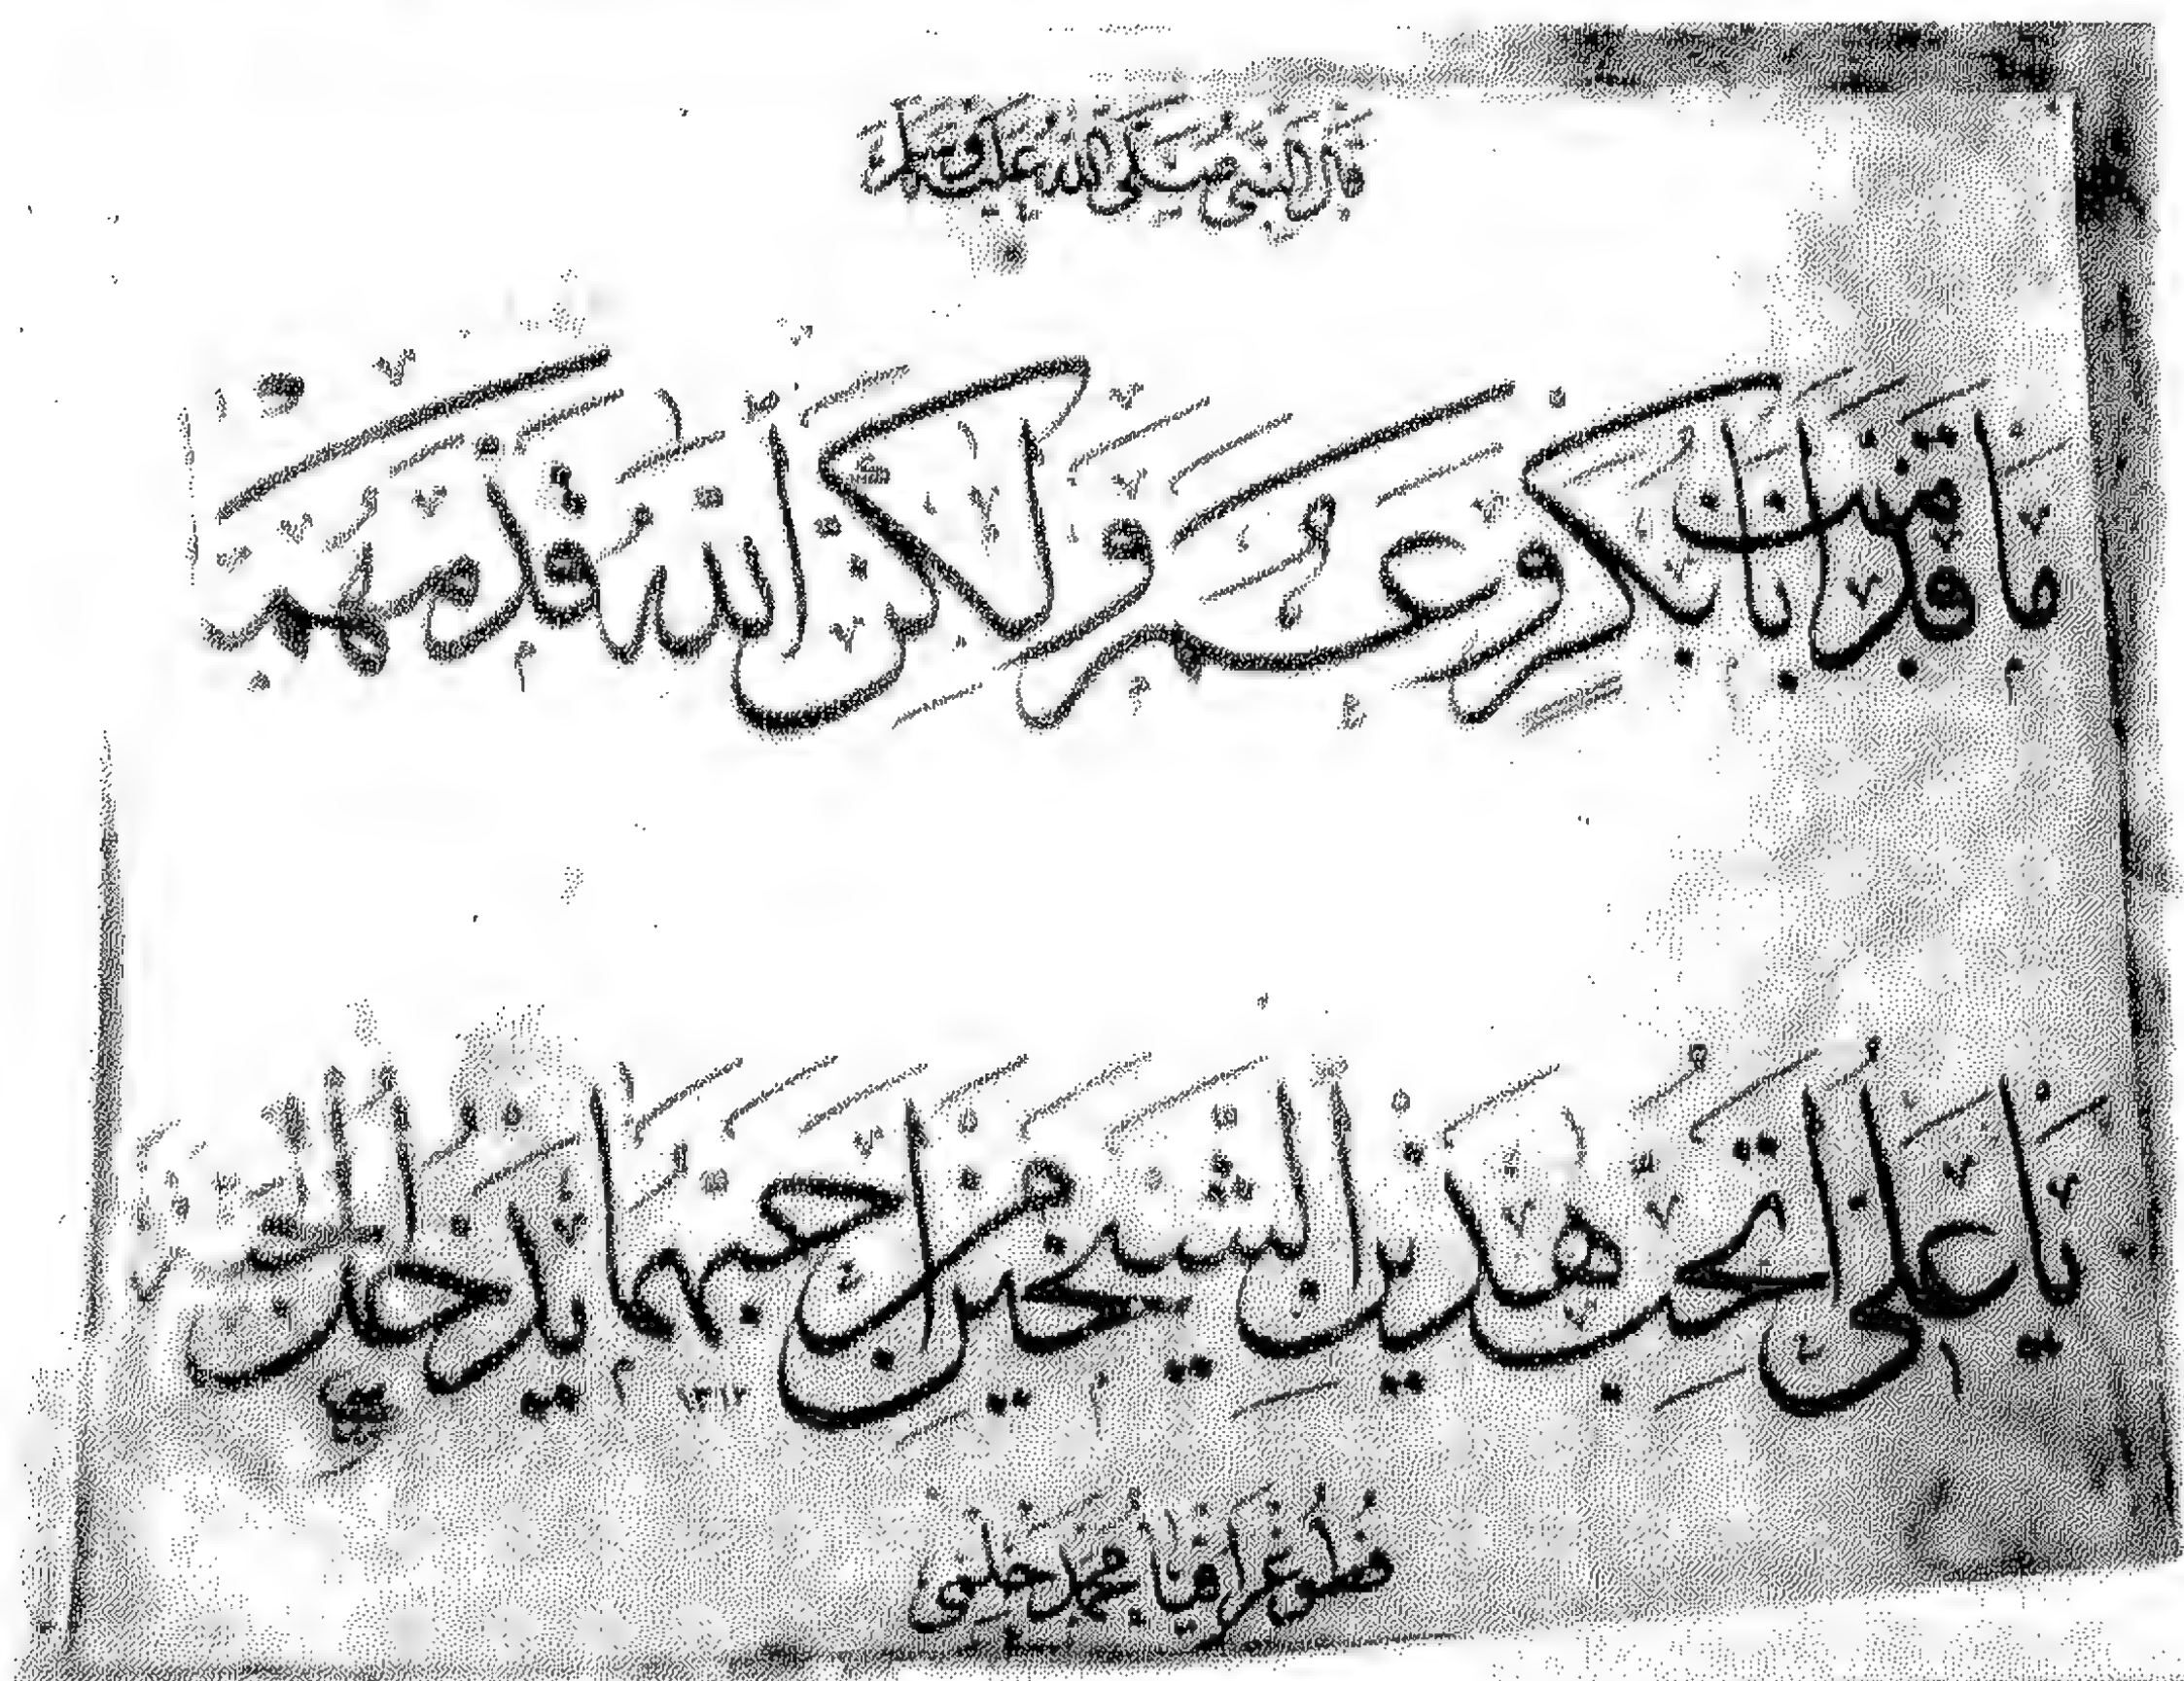 قال النبي صلى الله عليه وسلم
ما قدمت ابا بكر وعمر ولكن الله قدمهما
يا علي اتحب هذين الشيخين احبهما يدخل الجنة
محمد حلمي